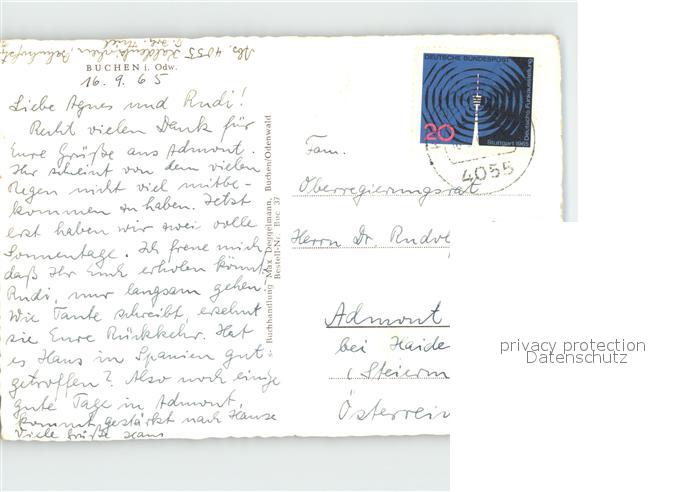 Abs. 4055 Kaldenkirchen, Bahnhofstr.
BUCHEN i. Odw.
16.9.65
Liebe Agnes und Rudi!
Recht vielen Dank für
Eure Grüße aus Admont.
Ihr scheint von dem vielen
Regen nicht viel mitbe-
kommen zu haben. Jetzt
erst haben wir zwei volle
Sonnentage. Ich freue mich,
daß Ihr Euch erholen könnt.
Rudi, nur langsam gehen.
Wie Tante schreibt, ersehnt
sie Eure Rückkehr. Hat
es Hans in Spanien gut
getroffen? Also noch einige
gute Tage in Admont,
kommt gestärkt nach Hause
Viele Grüße Hans
Buchhandlung Max Deggelmann, Buchen/Odenwald
Bestell-Nr. Buc 37
DEUTSCHE BUNDESPOST
20
Deutsche Funkausstellung
Stuttgart 1965
4055
Fam.
Oberregierungsrat
Herrn Dr. Rudolf
Admont
bei Haide
(Steierm
Österreich
privacy protection
Datenschutz